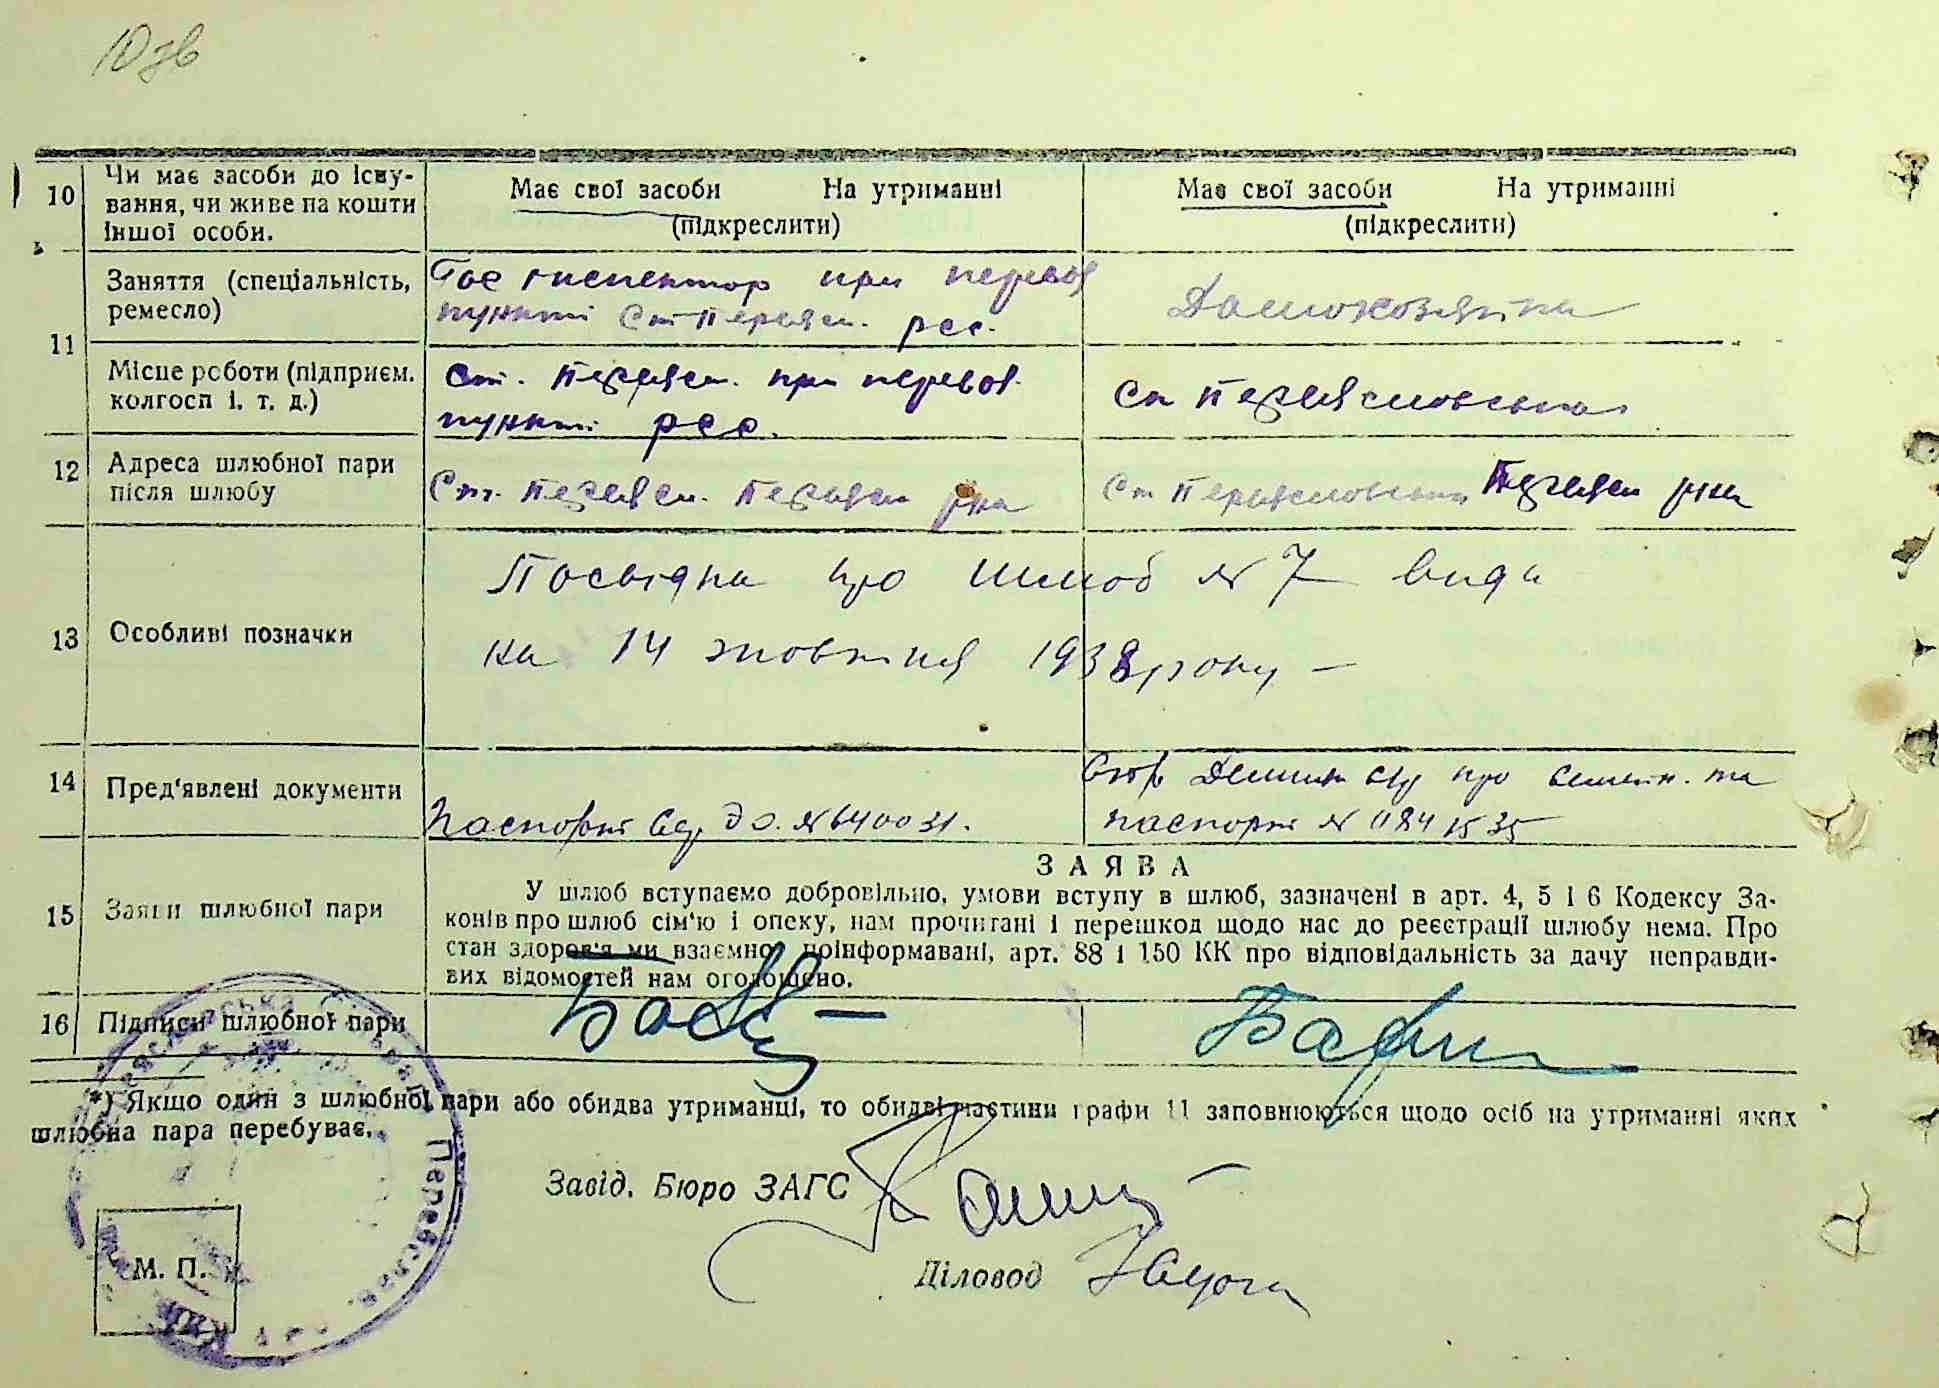 10 зв
10 Чи має засоби до існу-
вання, чи живе на кошти
іншої особи.
Має свої засоби На утриманні
(підкреслити)
Має свої засоби На утриманні
(підкреслити)
11
Заняття (спеціальність,
ремесло)
Гос інспектор при перевов
пункті Ст Переясл. рсс.
Домохозяйка
Місце роботи (підприєм.
колгосп і. т. д.)
ст. Переясл. при перевов.
пункті рсс.
ст Переяславська
12 Адреса шлюбної пари
після шлюбу
Ст. Переясл. Переясл р-на
Ст Переяславська Переясл р-на
13 Особливі позначки
Посвідка про шлюб № 7 вида
на 14 жовтня 1938 року —
14 Пред'явлені документи
Паспорт № 640031.
про та
паспорт №
15 Заяви шлюбної пари
ЗАЯВА
У шлюб вступаємо добровільно, умови вступу в шлюб, зазначені в арт. 4, 5 і 6 Кодексу За-
конів про шлюб сім'ю і опеку, нам прочитані і перешкод щодо нас до реєстрації шлюбу нема. Про
стан здоров'я ми взаємно поінформавані, арт. 88 і 150 КК про відповідальність за дачу неправди-
вих відомостей нам оголошено.
16 Підписи шлюбної пари
*) Якщо один з шлюбної пари або обидва утриманці, то обидві частини графи 11 заповнюються щодо осіб на утриманні яких
шлюбна пара перебуває.
Завід. Бюро ЗАГС
Діловод
М. П.